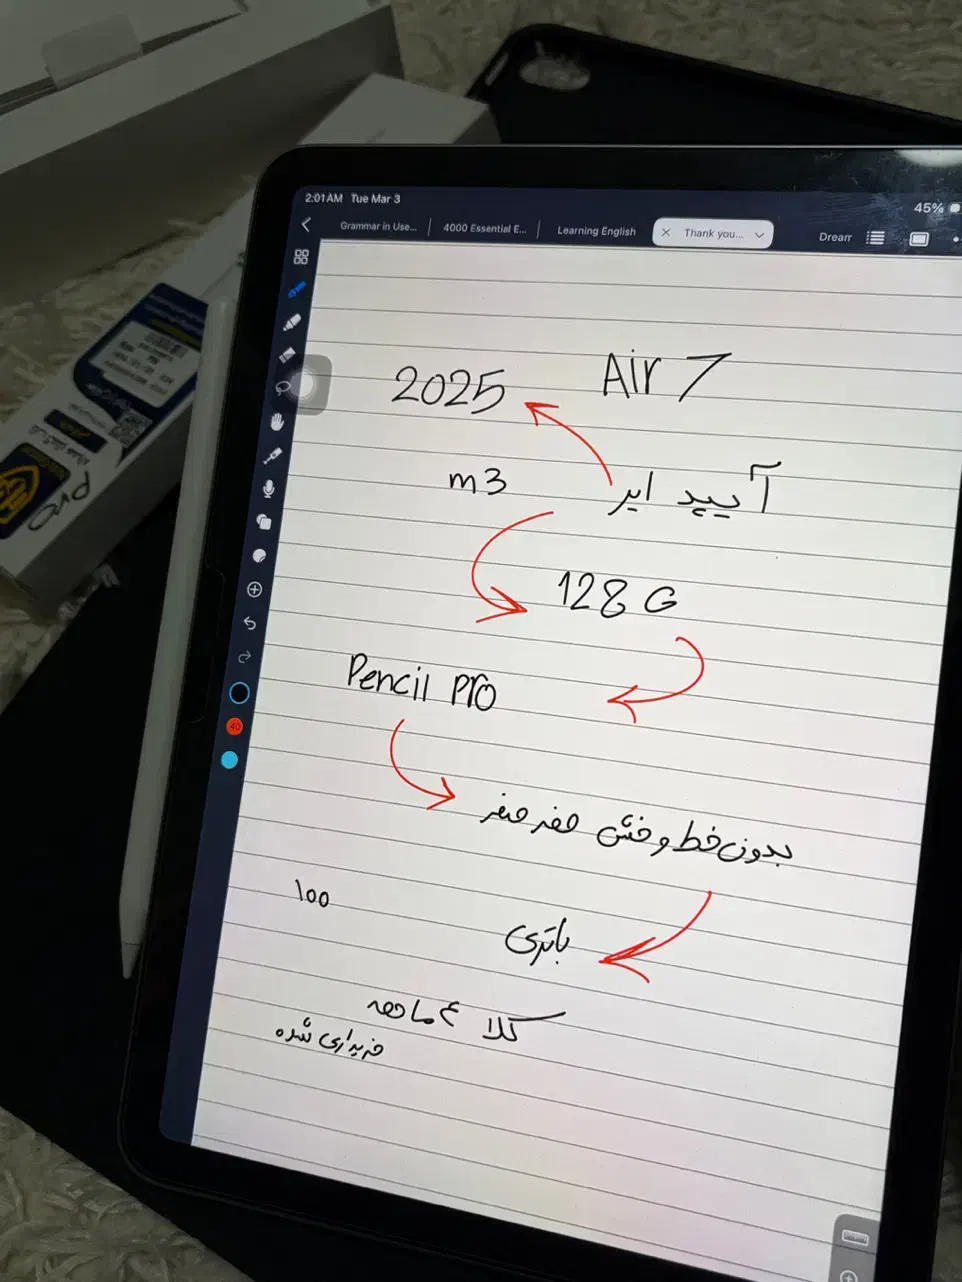 2:01 AM Tue Mar 3
45%
Grammar in Use...
4000 Essential E...
Learning English
Thank you...
Drearr
Air 7
2025
آیپد ایر
m3
128 G
Pencil Pro
بدون خط و خش صفر صفر
باتری ۱۰۰
کلا ۴ ماهه
خریداری شده
40
Pro